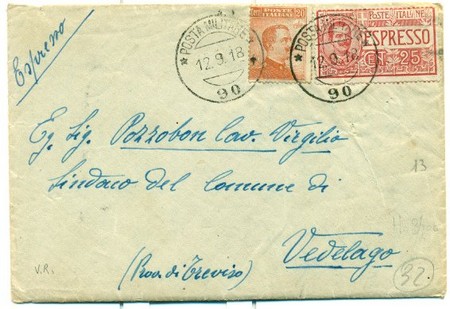 Espresso
POSTA MILITARE
12.9.18
90
POSTE ITALIANE
20
POSTA MILITARE
12.9.18
90
POSTE ITALIANE
ESPRESSO
CENT. 25
Eg. Sig. Pozzobon Cav. Virgilio
Sindaco del Comune di
Vedelago
(Prov. di Treviso)
13
V.R.
32